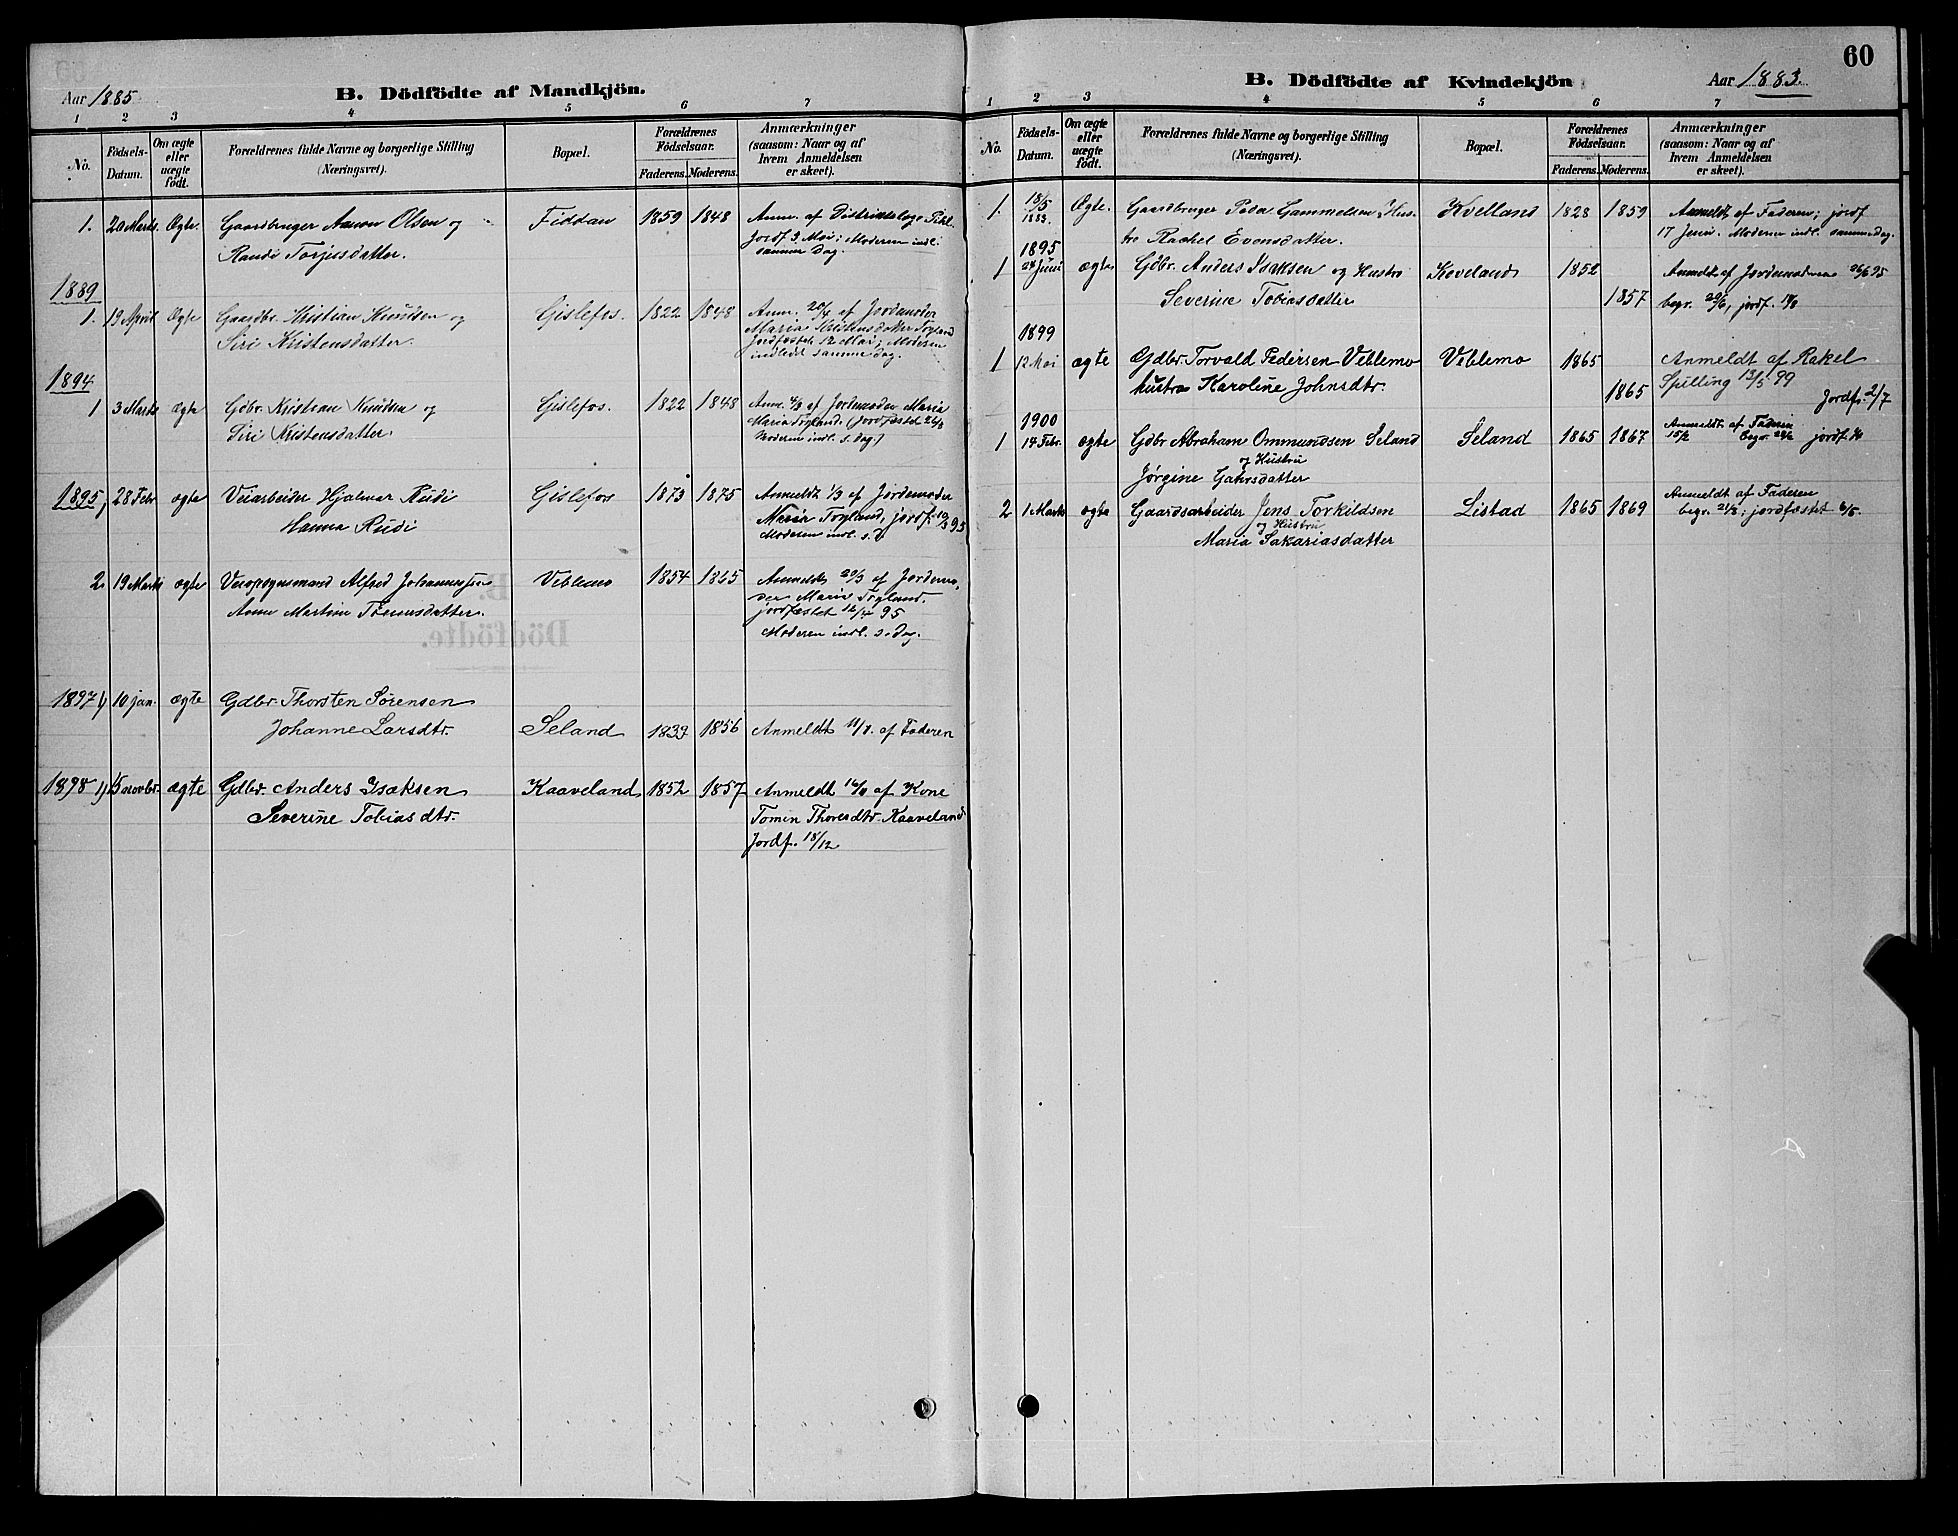 Aar 1885
B. Dödfödte af Mandkjön.
1 2 3 4 5 6 7
No.
Födsels-Datum.
Om ægte eller uægte födt.
Forældrenes fulde Navne og borgerlige Stilling
(Næringsvei).
Bopæl.
Forældrenes Födselsaar.
Faderens. Moderens.
Anmærkninger
(saasom: Naar og af
hvem Anmeldelsen
er skeet).
1. 20 Marts. Ægte. Gaardbruger Aanon Olsen og Fiddan 1859 1848 Anm. af Distriktslæge
Randi Torjusdatter. Jordf. 3. Mai; Moderen indl.
samme Dag.
1889
1. 19 April Ægte Gaardbr. Kristian Knudsen og Gislefos. 1822 1848 Anm. 20/4 af Jordemoder
Siri Kristensdatter. Maria Kristensdatter Togland
Jordfæstet 12 Mai; Moderen
indledt samme dag.
1894
1 3 Marts ægte Gdbr. Kristian Knudsen og Gislefos. 1822 1848 Anm. 4/3 af Jordemoder Maria
Siri Kristensdatter. Maria Togland. (Jordfæstet 26/3
Moderen indl. s. dag.)
1895, 28 Febr ægte Veiarbeider Hjalmar Rudi Gislefos 1873 1875 Anmeldt 1/3 af Jordemoder
Hanna Rudi Maria Togland, jordf. 10/3 95
Moderen indl. s. d.
2. 19 Marts ægte Veiopsynsmand Alfred Johannesen Veblemo 1854 1865 Anmeldt 20/3 af Jordemo-
Anne Martine Tønnesdatter. der Maria Togland.
jordfæstet 12/4 95
Moderen indl. s. Dag.
1897 1) 10 jan. ægte Gdbr. Thorsten Sørensen
Johanne Larsdtr. Seland 1839 1856 Anmeldt 11/1. af Faderen
1898 1) 15 novbr. ægte Gdbr. Anders Isaksen Kaaveland 1852 1857 Anmeldt 16/11 af Kone
Severine Tobiasdtr. Tomin Thoresdtr. Kaaveland
Jordf. 18/12
60
B. Dödfödte af Kvindekjön
Aar 1883.
1 2 3 4 5 6 7
No.
Födsels-Datum.
Om ægte eller uægte födt.
Forældrenes fulde Navne og borgerlige Stilling
(Næringsvei).
Bopæl.
Forældrenes Födselsaar.
Faderens. Moderens.
Anmærkninger
(saasom: Naar og af
hvem Anmeldelsen
er skeet).
1. 18/5 1883. Ægte. Gaardbruger Peder Gammelsen Hus- Kvelland 1828 1859 Anmeldt af Faderen; jordf
tro Rachel Evensdatter. 17 Juni. Moderen indl. samme Dag.
1895
1 24 Juni ægte Gdbr. Anders Isaksen og Hustro Koveland 1852 Anmeldt af Jordemoderen 26/6 95
Severine Tobiasdatter 1857 begr. 29/6, jordf.
1899
1 12 Mai ægte Gdbr. Torvald Pedersen Veblemo Veblemo 1865 Anmeldt af Rakel
hustro Karoline Johnsdtr. 1865 Spilling 13/5 99
Jordf. 2/7
1900
1 14 Febr. ægte Gdbr Abraham Ommundsen Seland Seland 1865 1867 Anmeldt af Faderen
15/2 begr. jordf.
og Hustru
Jørgine
2 1 Marts ægte Gaardsarbeider Jens Torkildsen Listad 1865 1869 Anmeldt af Faderen
og Hustru begr. 21/3; jordfæstet 6/5.
Maria Sakariasdatter
B.
Dödfödte.